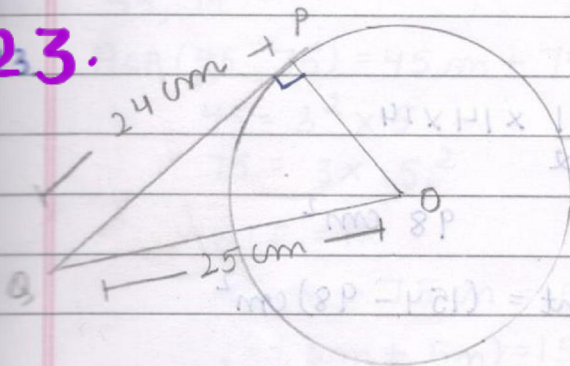 23.
P
24 cm
O
25 cm
Q